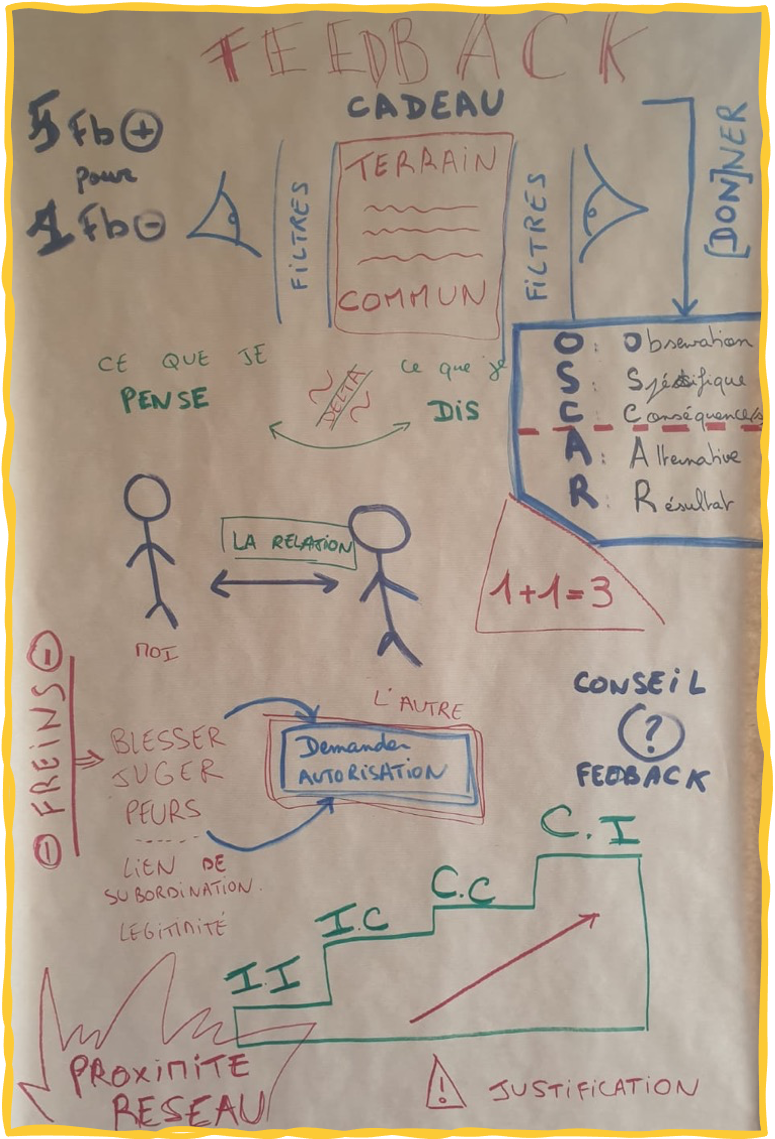 FEEDBACK
CADEAU
5 Fb +
pour
1 Fb -
FILTRES
TERRAIN
COMMUN
FILTRES
[DON]NER
O : Observation
S : Spécifique
C : Conséquence(s)
A : Alternative
R : Résultat
CE QUE JE
PENSE
DELTA
Ce que je
DIS
LA RELATION
MOI
L'AUTRE
1+1=3
- FREINS -
BLESSER
JUGER
PEURS
LIEN DE
SUBORDINATION.
LEGITIMITÉ
Demander
AUTORISATION
CONSEIL
?
FEEDBACK
I.I
I.C
C.C
C.I
PROXIMITE
RESEAU
! JUSTIFICATION